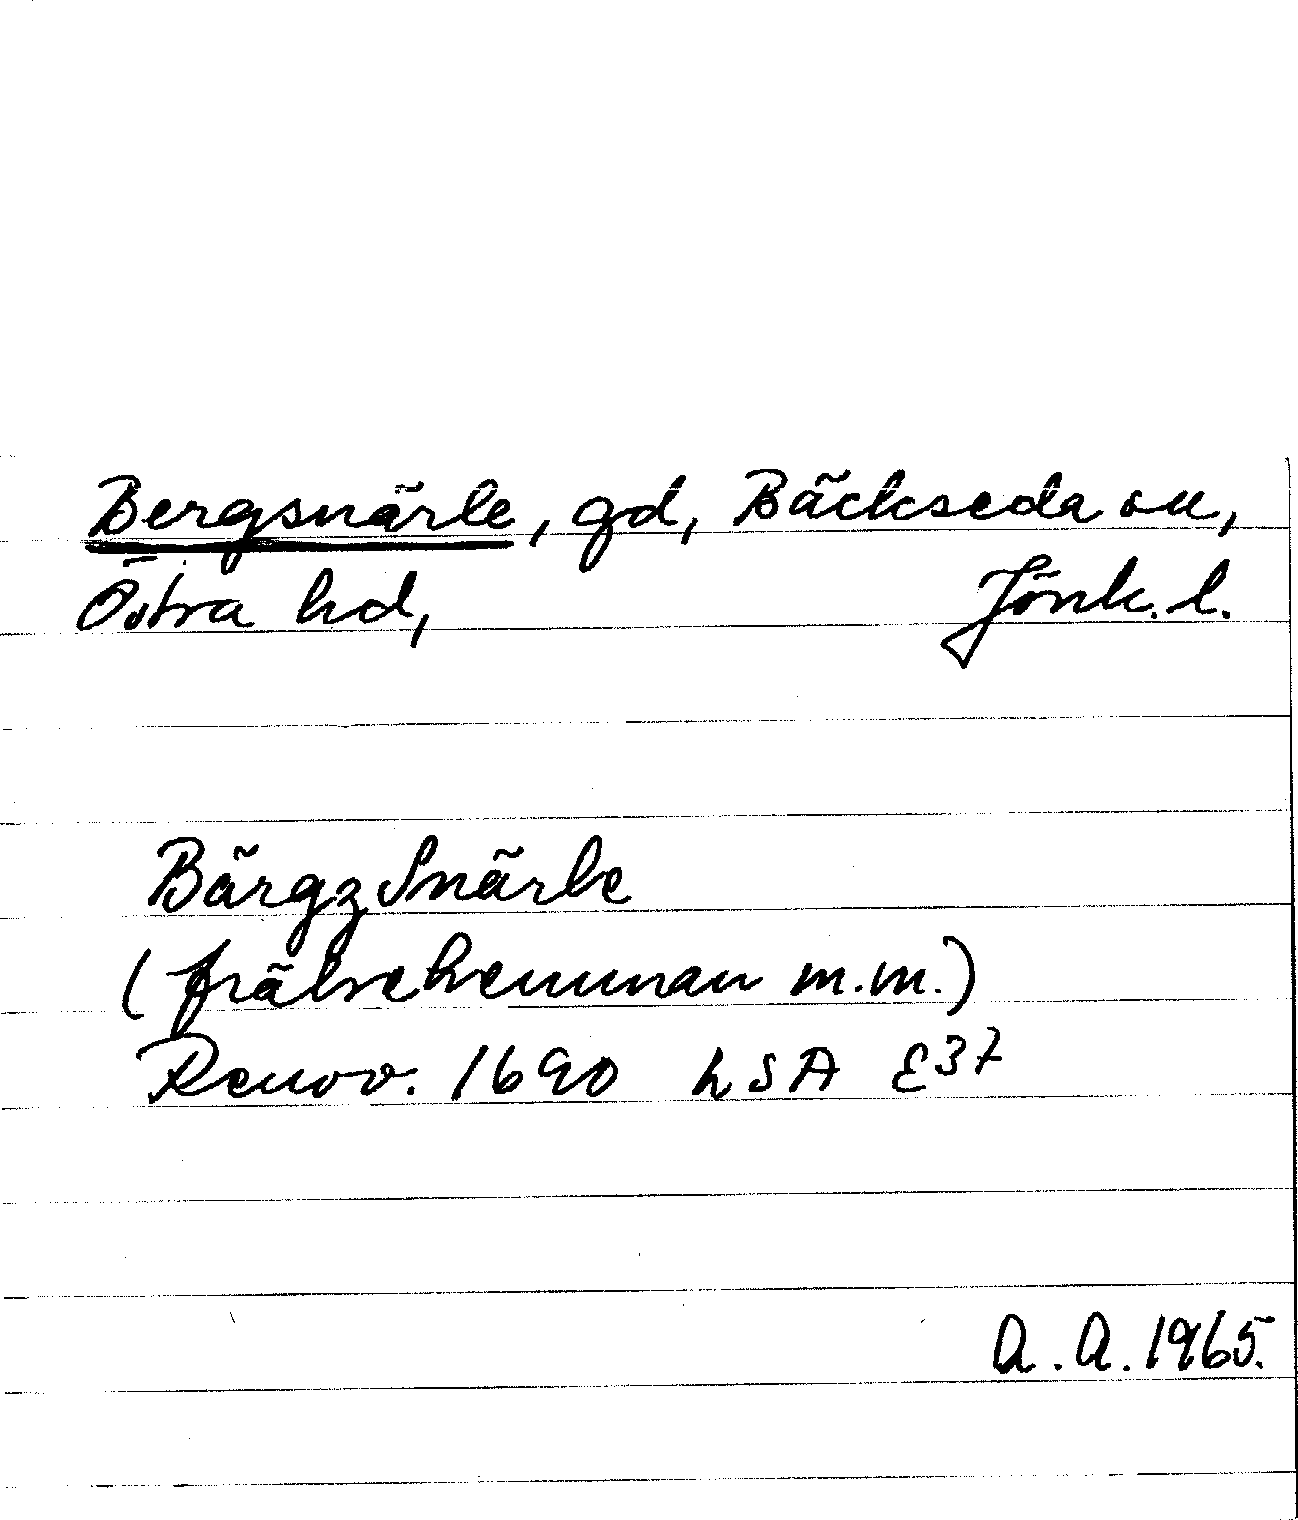 Bergsnärle, gd, Bäckseda sn,
Östra hd, Jönk. l.
Bärgz Snärle
(frälsehemman m.m.)
Renov. 1690 LSA E37
A. A. 1965.